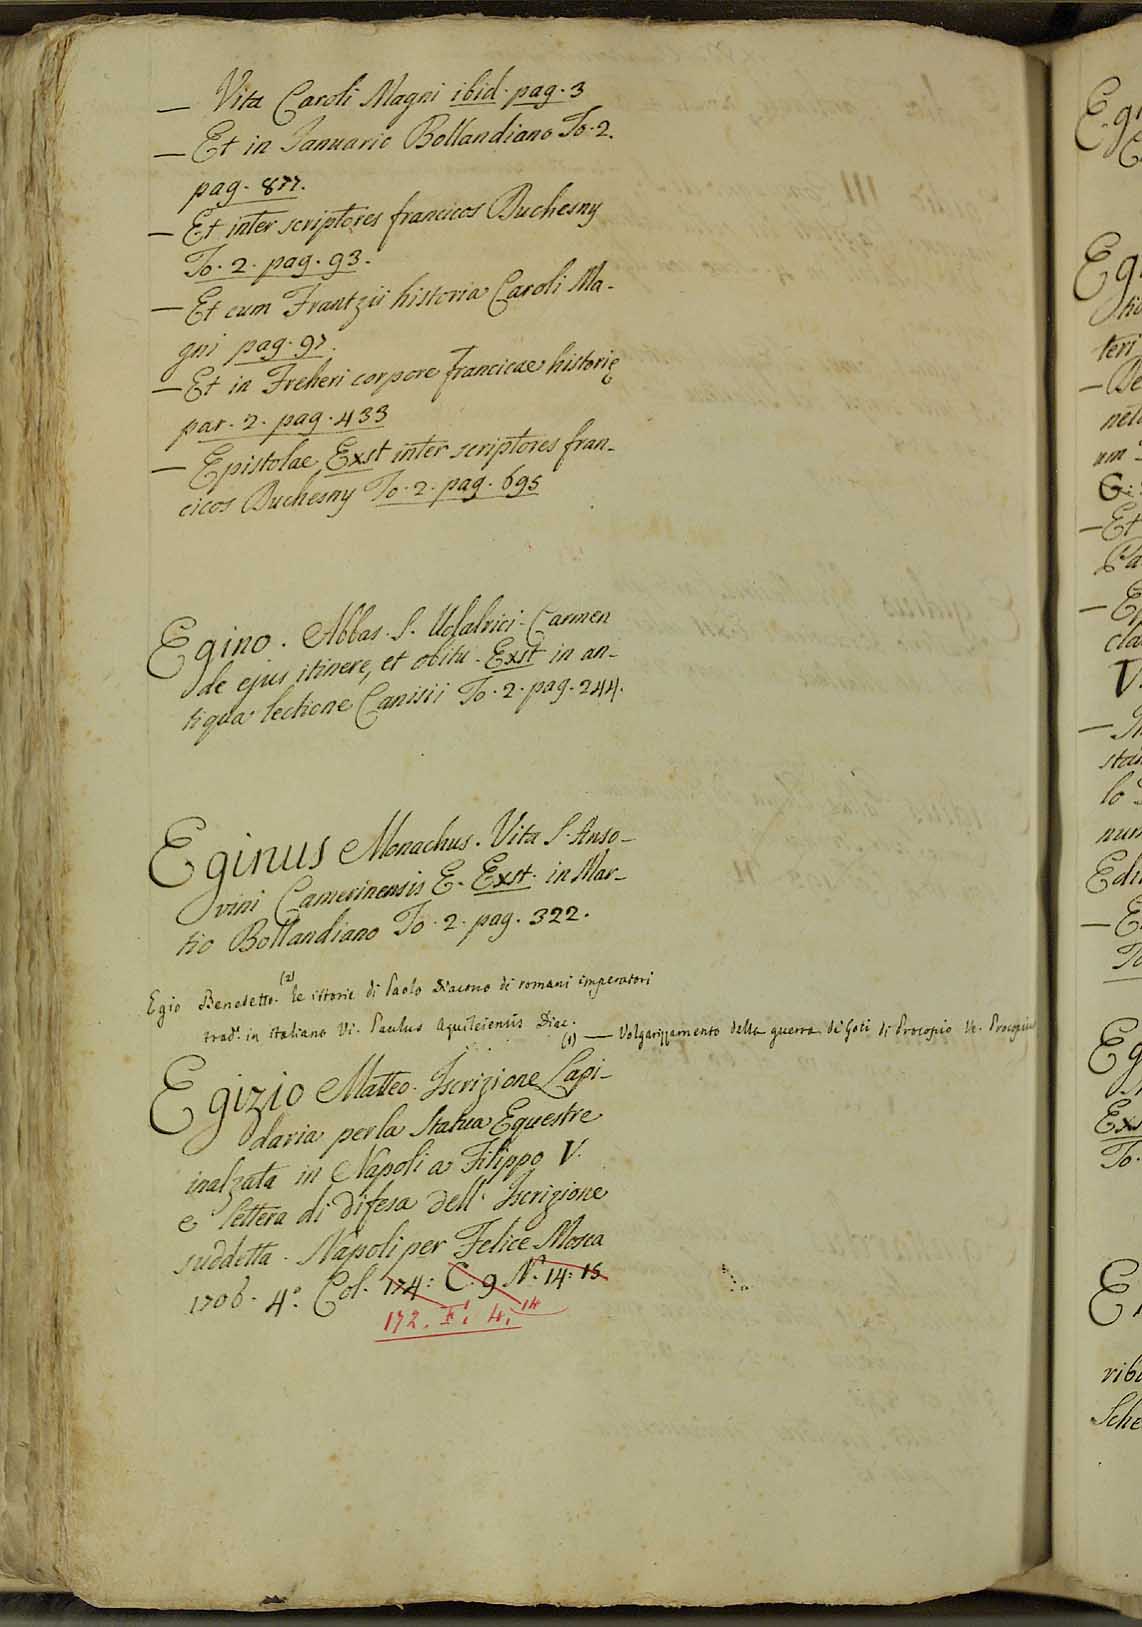 — Vita Caroli Magni ibid. pag. 3
— Et in Januario Bollandiano To. 2.
pag. 877.
— Et inter scriptores francicos Duchesny
To. 2. pag. 93.
— Et cum Frantzii historia Caroli Ma-
gni pag. 97.
— Et in Freheri corpore francicae historię
par. 2. pag. 433
— Epistolae. Exst inter scriptores fran-
cicos Duchesny To. 2. pag. 695
Egino. Abbas S. Udalrici. Carmen
de ejus itinere, et obitu. Exst in an-
tiqua lectione Canisii To. 2. pag. 244.
Eginus Monachus. Vita S. Anso-
vini Camerinensis E. Exst. in Mar-
tio Bollandiano To. 2. pag. 322.
Egio Benedetto. (2) le istorie di Paolo Diacono di romani imperatori
trad. in italiano Vi. Paulus Aquileiensis Diac.
(1) — Volgarizzamento della guerra de' Goti di Procopio Ve. Procopius
Egizio Matteo. Iscrizione Lapi-
daria per la Statua Equestre
inalzata in Napoli a Filippo V.
e lettera di difesa dell' Iscrizione
suddetta. Napoli per Felice Mosca
1706. 4.° Col. 174: C. 9 N.° 14: 15
172. F. 4. 14
Egi
Egi
teri
— De
— Et
— Ep
cla
V.
lo
num
Edi
— E
To
Eg
Exs
To.
E
ribu
Sche